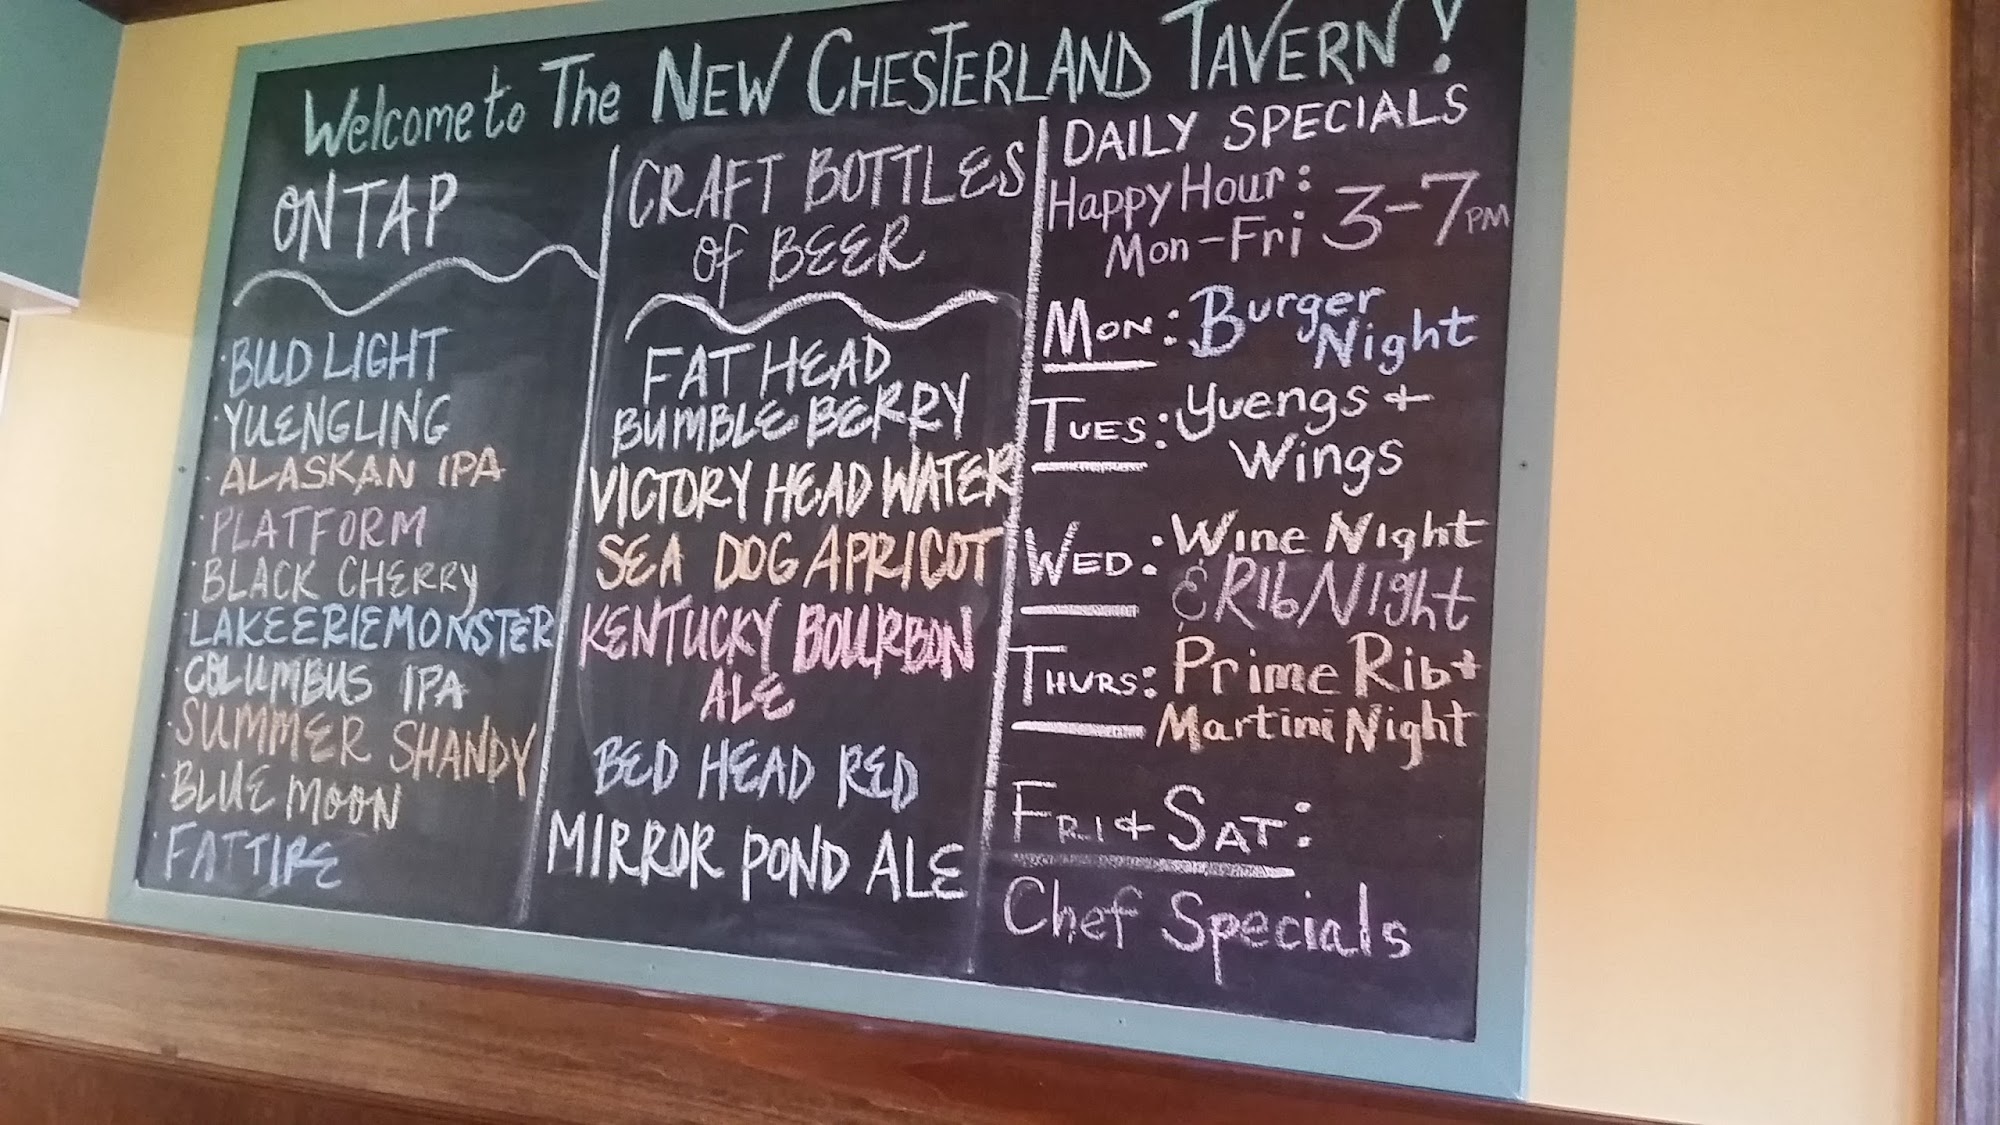 Welcome to The NEW CHESTERLAND TAVERN!
ON TAP
BUD LIGHT
YUENGLING
ALASKAN IPA
PLATFORM
BLACK CHERRY
LAKE ERIE MONSTER
COLUMBUS IPA
SUMMER SHANDY
BLUE MOON
FAT TIRE
CRAFT BOTTLES
of BEER
FAT HEAD
BUMBLE BERRY
VICTORY HEAD WATER
SEA DOG APRICOT
KENTUCKY BOURBON
ALE
BED HEAD RED
MIRROR POND ALE
DAILY SPECIALS
Happy Hour:
Mon-Fri 3-7PM
MON: Burger
Night
TUES: Yuengs +
Wings
WED: Wine Night
& Rib Night
THURS: Prime Rib +
Martini Night
FRI + SAT:
Chef Specials